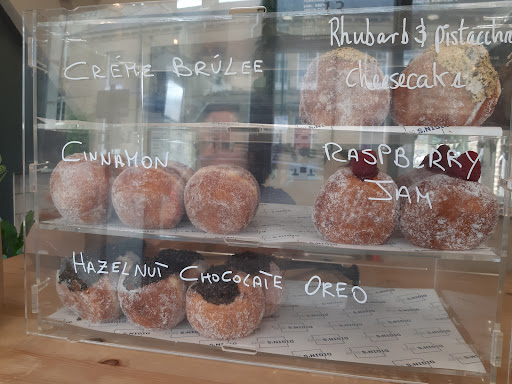 Rhubarb & pistacchio
CRÉME BRÛLEE
cheesecake
CINNAMON
RASPBERRY
JAM
HAZELNUT CHOCOLATE OREO